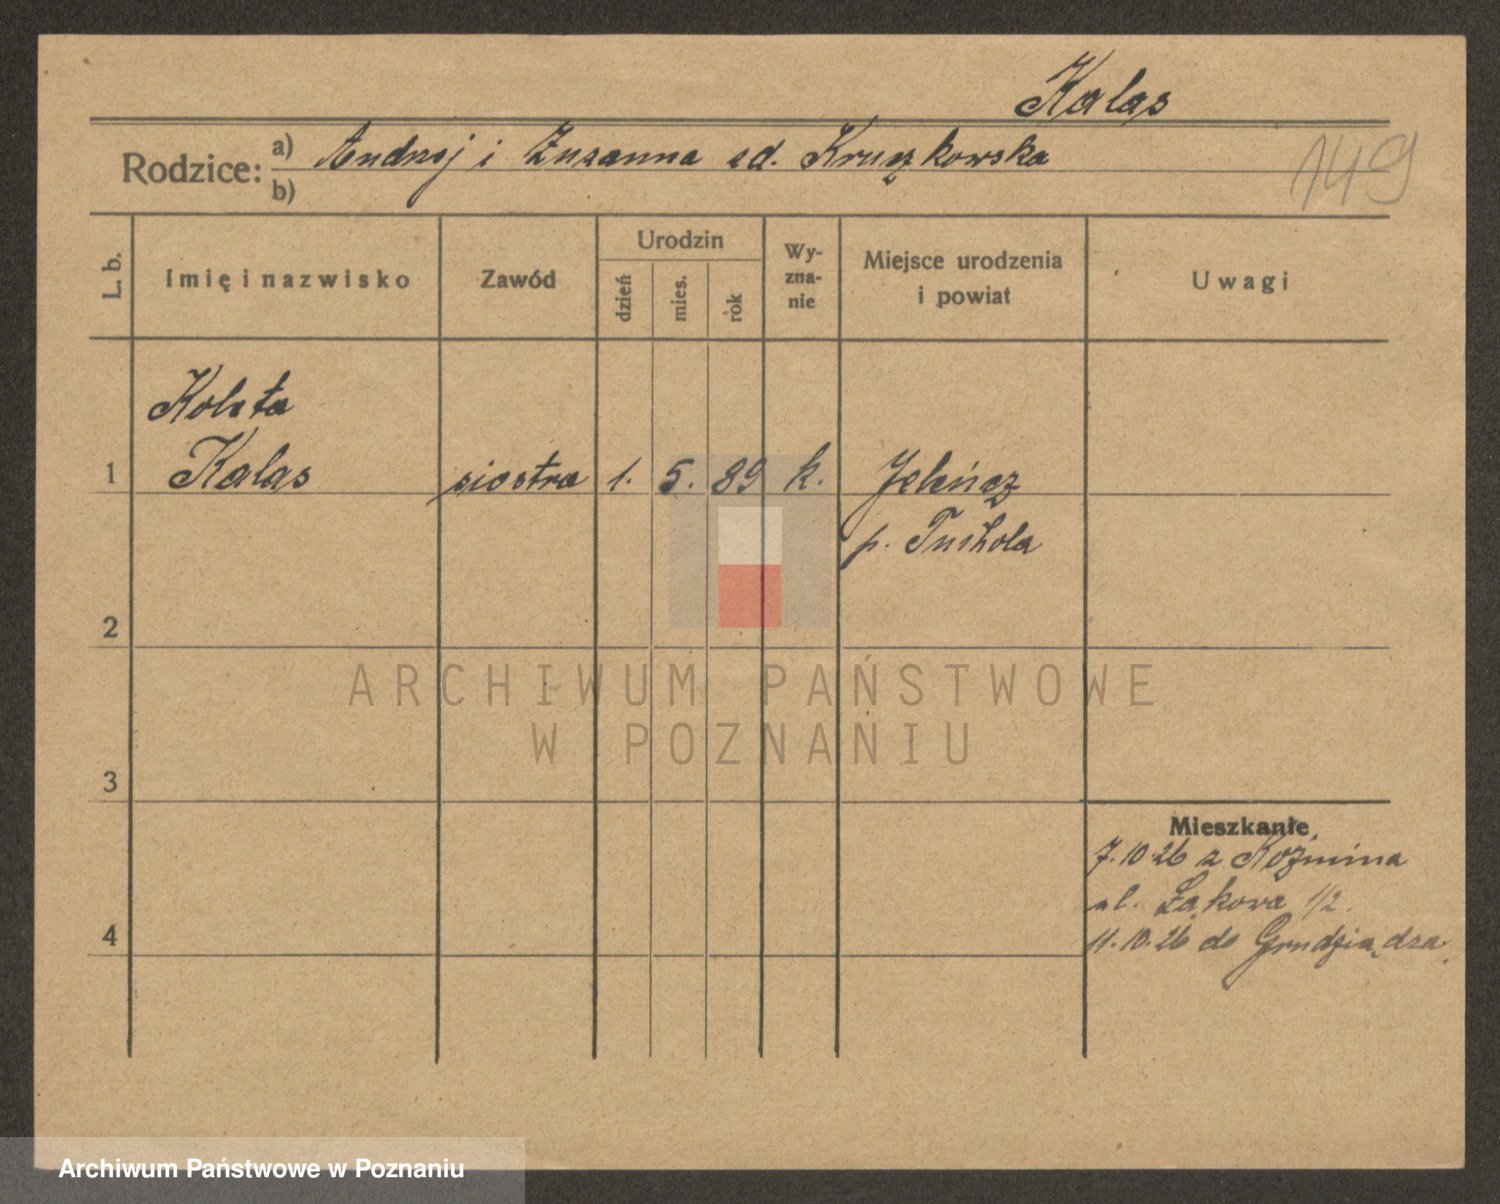 Kalas
Rodzice: a) Andrzej i Zuzanna zd. Kruczkowska
b)
149
L. b.
Imię i nazwisko
Zawód
Urodzin
dzień
mies.
rok
Wy-
zna-
nie
Miejsce urodzenia
i powiat
Uwagi
Koleta
1 Kalas siostra 1. 5. 89 k. Jeleńcz
p. Tuchola
2
ARCHIWUM PAŃSTWOWE
W POZNANIU
3
Mieszkanie
7.10.26 z Koźmina
ul. Łąkowa 1/2.
4 11.10.26 do Grudziądza.
Archiwum Państwowe w Poznaniu